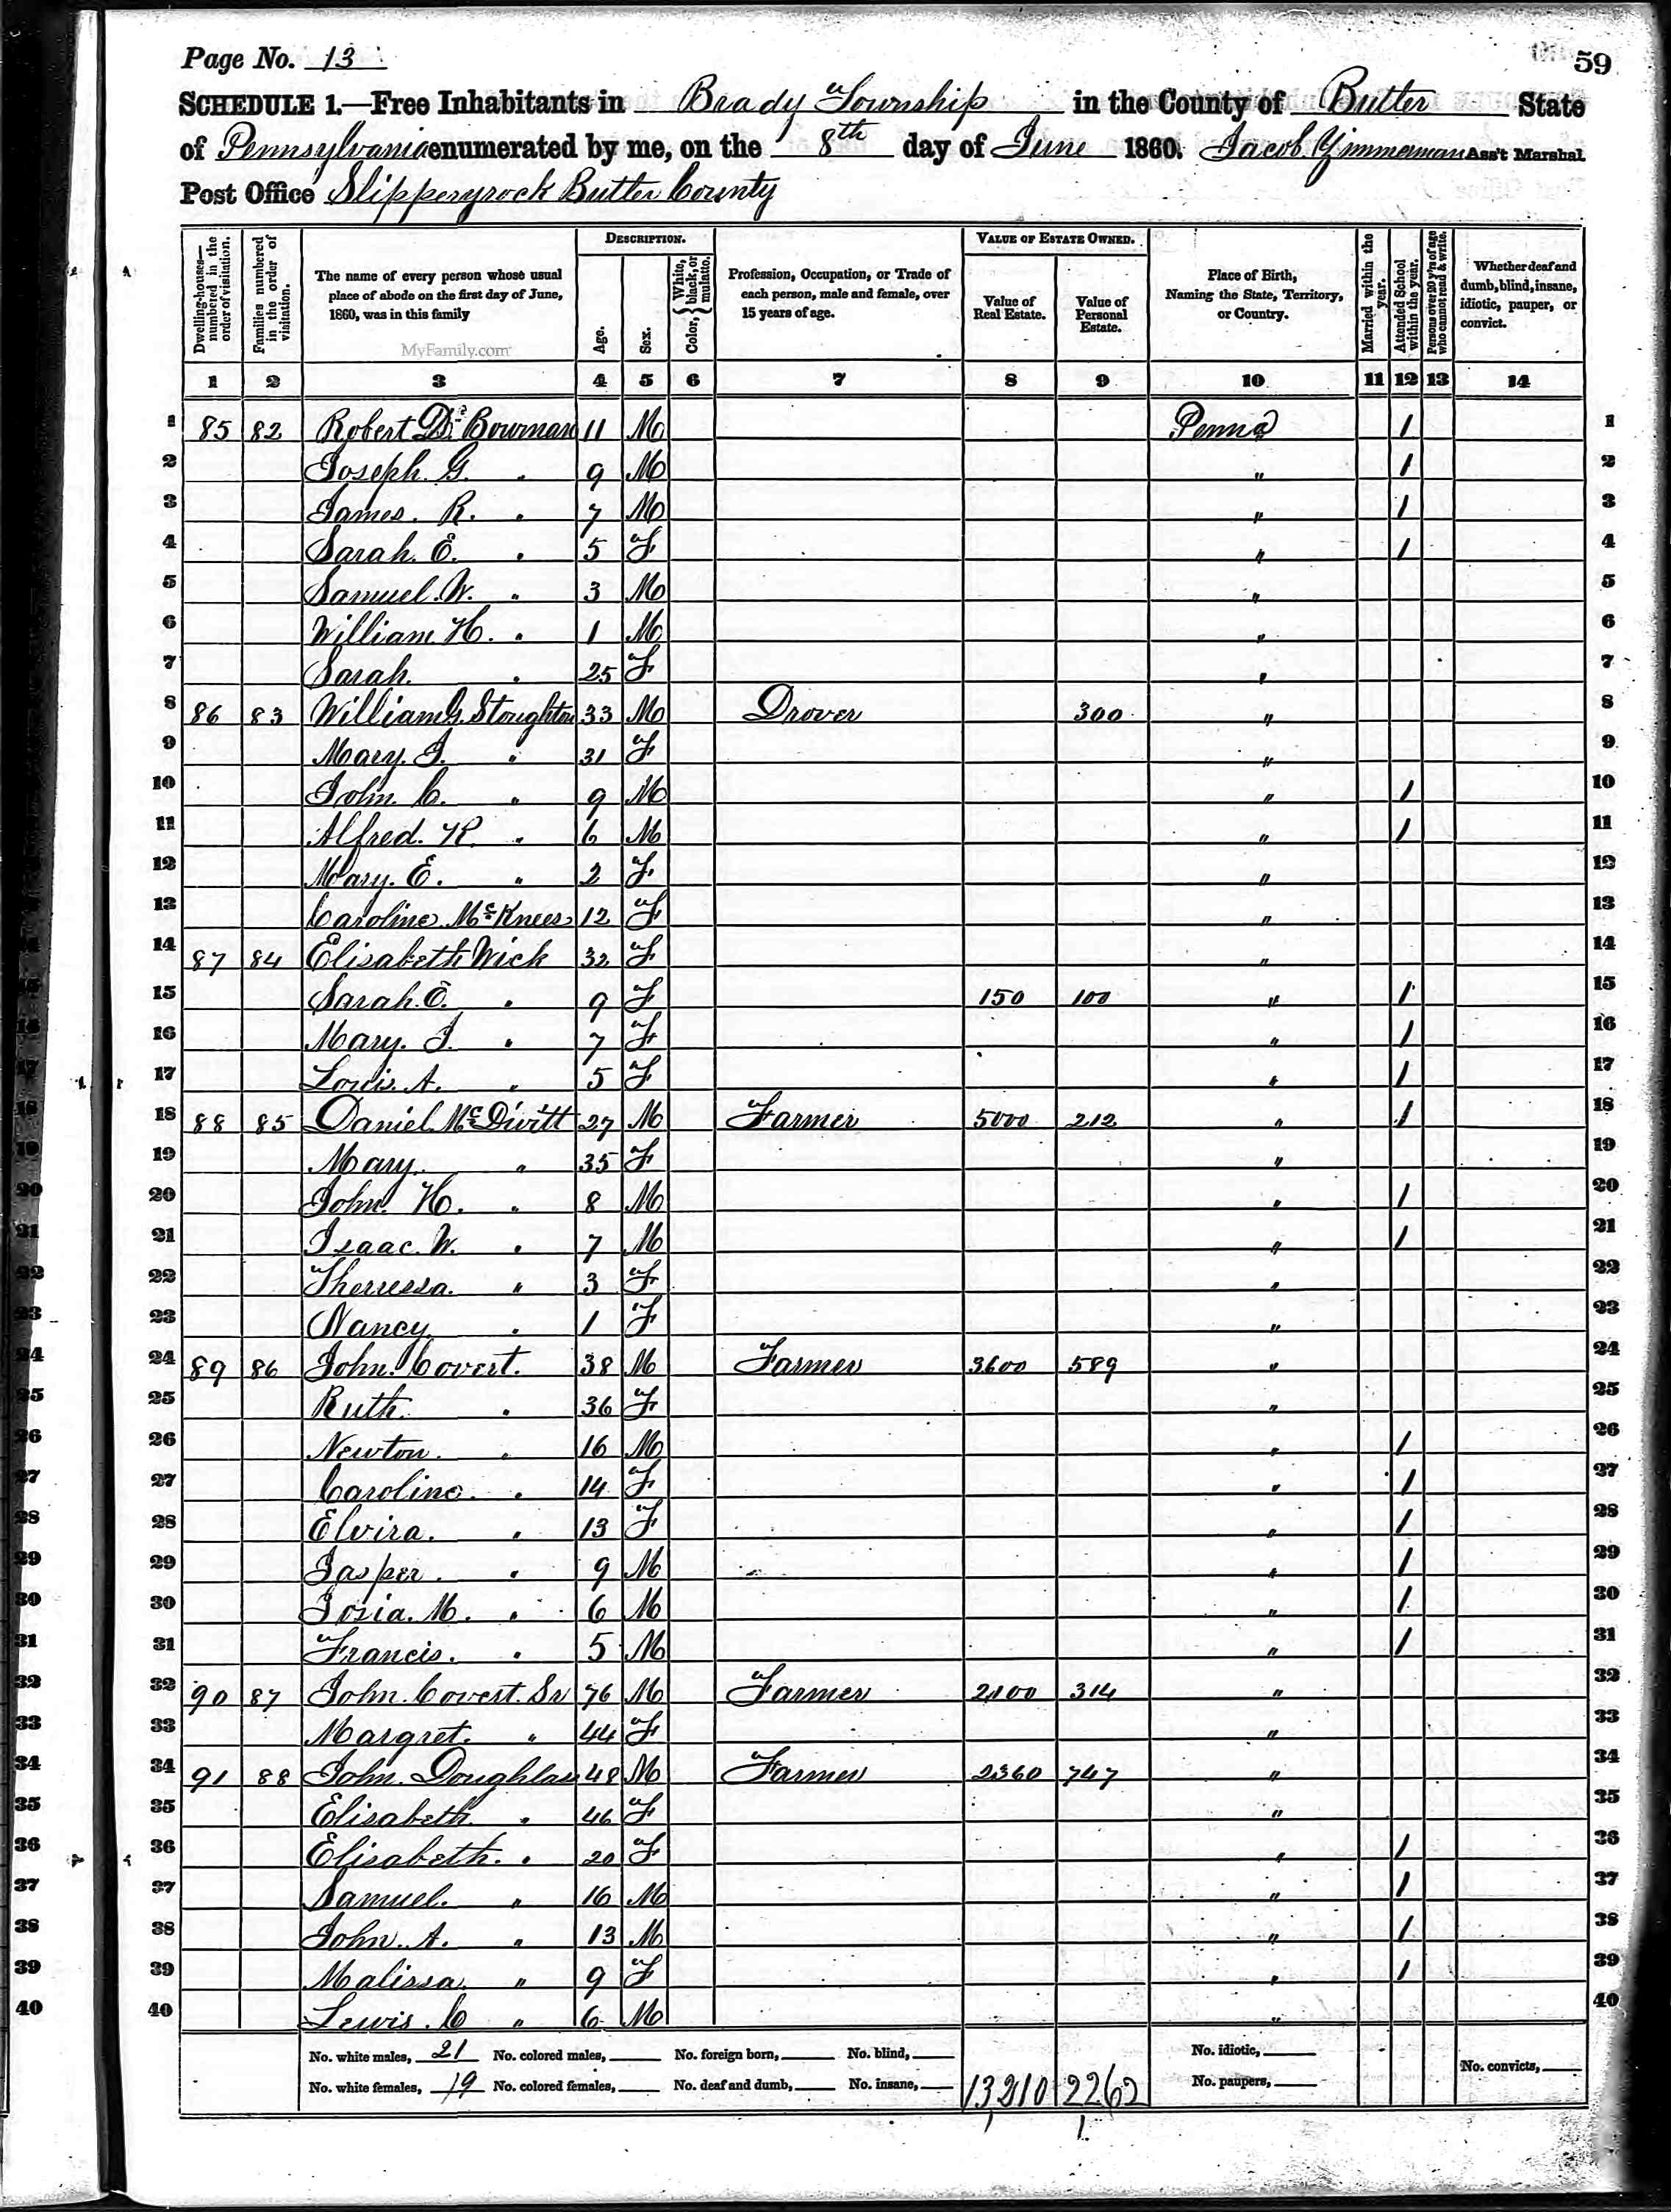 Page No. 13
59
SCHEDULE 1.—Free Inhabitants in Brady Township in the County of Butler State
of Pennsylvania enumerated by me, on the 8th day of June 1860. Jacob Zimmerman Ass't Marshal
Post Office Slipperyrock Butler County
Dwelling-houses—numbered in the order of visitation.
Families numbered in the order of visitation.
The name of every person whose usual place of abode on the first day of June, 1860, was in this family
MyFamily.com
DESCRIPTION.
Age.
Sex.
Color, { White, black, or mulatto.
Profession, Occupation, or Trade of each person, male and female, over 15 years of age.
VALUE OF ESTATE OWNED.
Value of Real Estate.
Value of Personal Estate.
Place of Birth, Naming the State, Territory, or Country.
Married within the year.
Attended School within the year.
Persons over 20 y'rs of age who cannot read & write.
Whether deaf and dumb, blind, insane, idiotic, pauper, or convict.
1 2 3 4 5 6 7 8 9 10 11 12 13 14
1 85 82 Robert Bowman 11 M Penna / 1
2 Joseph G. " 9 M " / 2
3 James R. " 7 M " / 3
4 Sarah E. " 5 F " / 4
5 Samuel W. " 3 M " 5
6 William H. " 1 M " 6
7 Sarah " 25 F " 7
8 86 83 William G. Stoughton 33 M Drover 300 " 8
9 Mary J. " 31 F " 9
10 John C. " 9 M " / 10
11 Alfred K. " 6 M " / 11
12 Mary E. " 2 F " 12
13 Caroline McKnees 12 F " 13
14 87 84 Elisabeth Wick 32 F " 14
15 Sarah E. " 9 F 150 100 " / 15
16 Mary J. " 7 F " / 16
17 Lovis A. " 5 F " / 17
18 88 85 Daniel McDivitt 27 M Farmer 5000 212 " / 18
19 Mary " 35 F " 19
20 John H. " 8 M " / 20
21 Isaac W. " 7 M " / 21
22 Therressa " 3 F " 22
23 Nancy " 1 F " 23
24 89 86 John Covert. 38 M Farmer 3600 589 " 24
25 Ruth " 36 F " 25
26 Newton " 16 M " / 26
27 Caroline " 14 F " / 27
28 Elvira. " 13 F " / 28
29 Jasper. " 9 M " / 29
30 Josia. M. " 6 M " / 30
31 Francis. " 5 M " / 31
32 90 87 John Covert Sr 76 M Farmer 2100 314 " 32
33 Margret. " 44 F " 33
34 91 88 John Doughlas 48 M Farmer 2360 747 " 34
35 Elisabeth " 46 F " 35
36 Elisabeth. " 20 F " / 36
37 Samuel. " 16 M " / 37
38 John A. " 13 M " / 38
39 Malissa " 9 F " / 39
40 Lewis C " 6 M " 40
No. white males, 21 No. colored males, No. foreign born, No. blind, No. idiotic,
No. white females, 19 No. colored females, No. deaf and dumb, No. insane, 13210 2262 No. paupers, No. convicts,